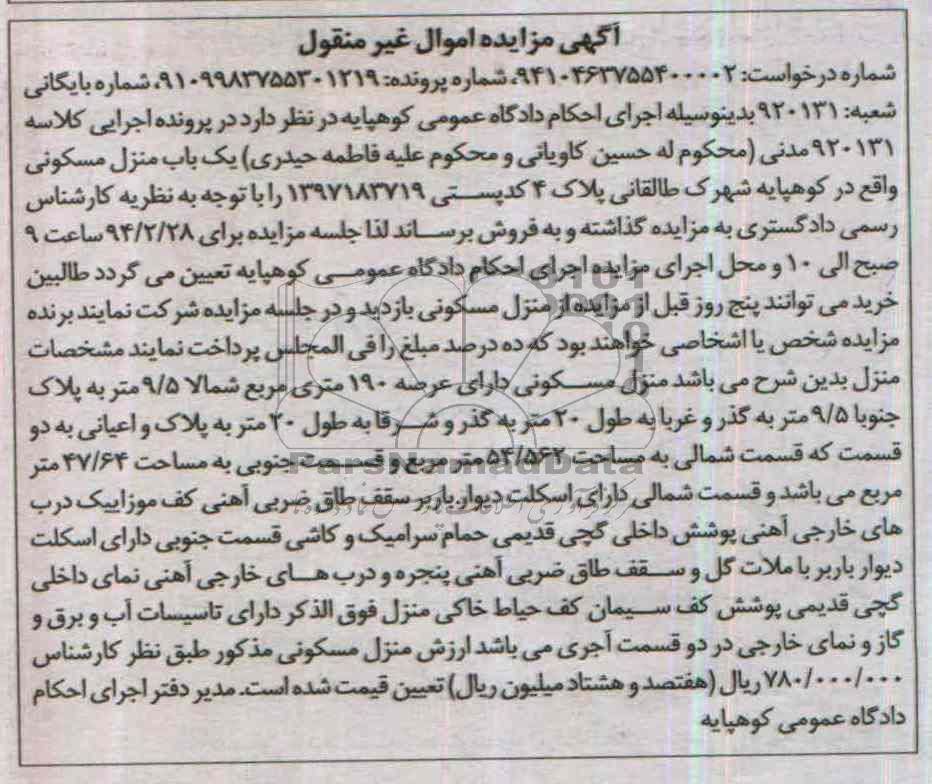 آگهی مزایده اموال غیر منقول
شماره درخواست: ۹۴۱۰۴۶۳۷۵۵۴۰۰۰۰۲، شماره پرونده: ۹۱۰۹۹۸۳۷۵۵۳۰۱۲۱۹، شماره بایگانی
شعبه: ۹۲۰۱۳۱ بدینوسیله اجرای احکام دادگاه عمومی کوهپایه در نظر دارد در پرونده اجرایی کلاسه
۹۲۰۱۳۱ مدنی (محکوم له حسین کاویانی و محکوم علیه فاطمه حیدری) یک باب منزل مسکونی
واقع در کوهپایه شهرک طالقانی پلاک ۴ کدپستی ۱۳۹۷۱۸۳۷۱۹ را با توجه به نظریه کارشناس
رسمی دادگستری به مزایده گذاشته و به فروش برساند لذا جلسه مزایده برای ۹۴/۲/۲۸ ساعت ۹
صبح الی ۱۰ و محل اجرای مزایده اجرای احکام دادگاه عمومی کوهپایه تعیین می گردد طالبین
خرید می توانند پنج روز قبل از مزایده از منزل مسکونی بازدید و در جلسه مزایده شرکت نمایند برنده
مزایده شخص یا اشخاصی خواهند بود که ده درصد مبلغ را فی المجلس پرداخت نمایند مشخصات
منزل بدین شرح می باشد منزل مسکونی دارای عرصه ۱۹۰ متری مربع شمالا ۹/۵ متر به پلاک
جنوبا ۹/۵ متر به گذر و غربا به طول ۲۰ متر به گذر و شرقا به طول ۲۰ متر به پلاک و اعیانی به دو
قسمت که قسمت شمالی به مساحت ۵۴/۵۶۲ متر مربع و قسمت جنوبی به مساحت ۴۷/۶۴ متر
مربع می باشد و قسمت شمالی دارای اسکلت دیوار باربر سقف طاق ضربی آهنی کف موزاییک درب
های خارجی آهنی پوشش داخلی گچی قدیمی حمام سرامیک و کاشی قسمت جنوبی دارای اسکلت
دیوار باربر با ملات گل و سقف طاق ضربی آهنی پنجره و درب های خارجی آهنی نمای داخلی
گچی قدیمی پوشش کف سیمان کف حیاط خاکی منزل فوق الذکر دارای تاسیسات آب و برق و
گاز و نمای خارجی در دو قسمت آجری می باشد ارزش منزل مسکونی مذکور طبق نظر کارشناس
۷۸۰/۰۰۰/۰۰۰ ریال (هفتصد و هشتاد میلیون ریال) تعیین قیمت شده است. مدیر دفتر اجرای احکام
دادگاه عمومی کوهپایه
ParsNamadData